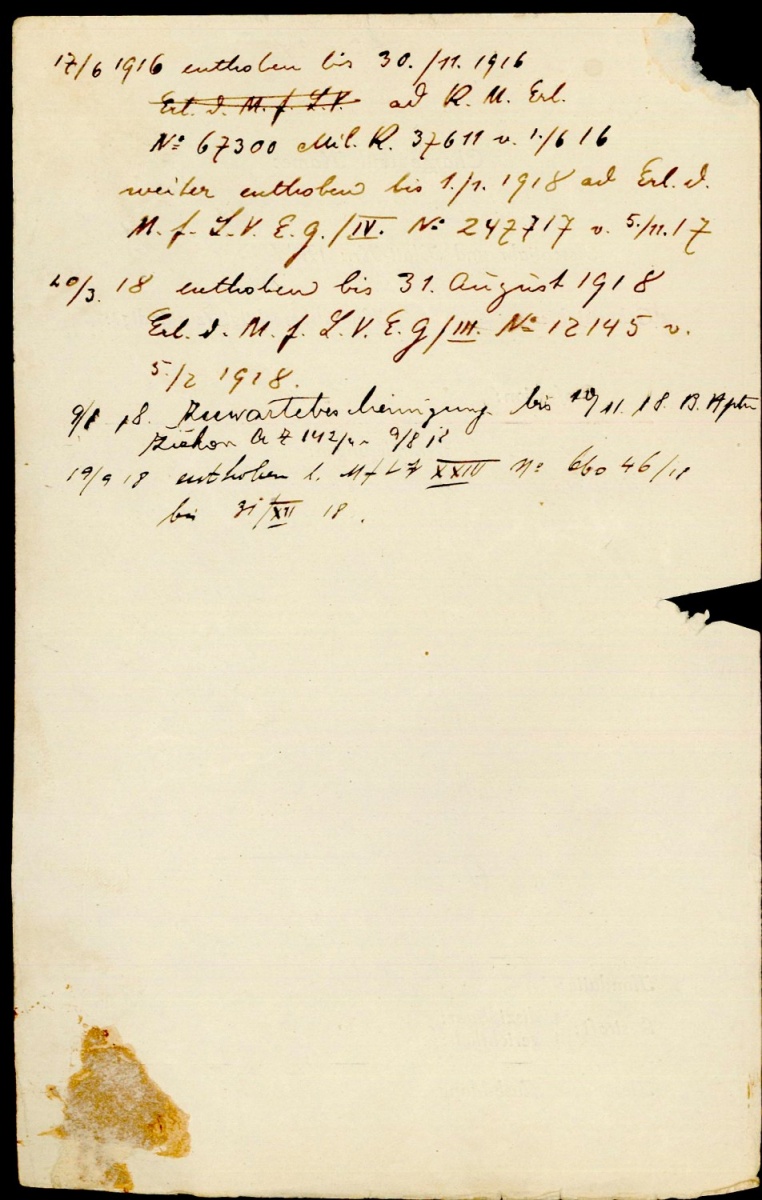 17/6 1916 enthoben bis 30./11. 1916
Erl. d. M. f. L.V. ad K. M. Erl.
No 67300 Mil. R. 37611 v. 1./6 16
weiter enthoben bis 1./1. 1918 ad Erl. d.
M. f. L.V. E. g. / IV. No 247717 v. 5./11. 17
20/3. 18 enthoben bis 31. August 1918
Erl. d. M. f. L. V. E. g / III. No 12145 v.
5./2 1918.
9/8 18. Zuwartebescheinigung bis 11. 18. B.
142/ 9/8 18
19/9 18 enthoben l. M f L V XXIV No 66046/18
bis 31/XII 18.